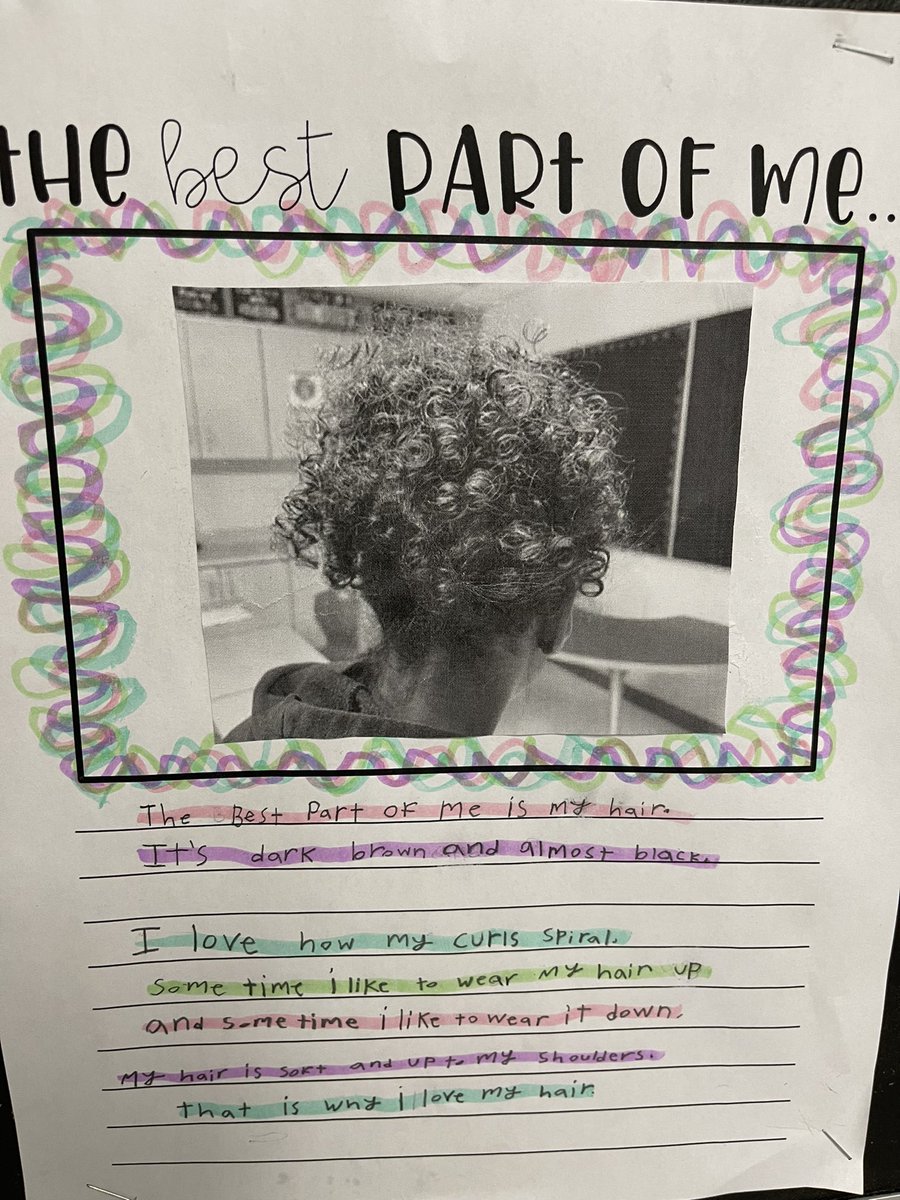 THE best PART OF Me..
The Best Part OF Me is my hair.
It's dark brown and almost black.
I love how my curls spiral.
Some time i like to wear my hair up
and some time i like to wear it down.
My hair is soft and up to my shoulders.
that is why i love my hair.